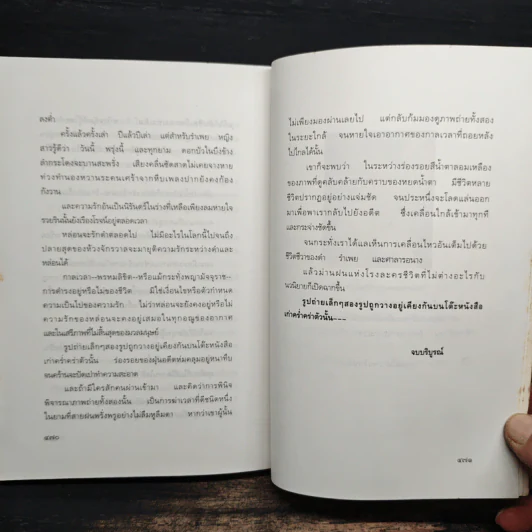 ลงดำ
ครั้งแล้วครั้งเล่า ปีแล้วปีเล่า แต่สำหรับรำเพย หญิง
สาวรู้ดีว่า วันนี้ พรุ่งนี้ และทุกยาม ดอกบัวในบึงข้าง
ลำกระโดงจะบานสะพรั่ง เสียงคลื่นซัดสาดไม่เคยจางหาย
ท่วงทำนองหวานระคนเศร้าจากหีบเพลงปากยังคงก้อง
กังวาน
และความรักอันเป็นนิรันดร์ในร่างที่เหลือเพียงลมหายใจ
รวยรินนั้นยังเรืองโรจน์อยู่ตลอดเวลา
หล่อนจะรักดำตลอดไป ไม่มีอะไรในโลกนี้ไปจนถึง
ปลายสุดของห้วงจักรวาลจะมายุติความรักระหว่างดำและ
หล่อนได้
กาลเวลา–พรหมลิขิต–หรือแม้กระทั่งพญามัจจุราช–
การดำรงอยู่หรือไม่ของชีวิต มิใช่เงื่อนไขหรือตัวกำหนด
ความเป็นไปของความรัก ไม่ว่าหล่อนจะยังคงอยู่หรือไม่
ความรักของหล่อนจะคงอยู่เสมอในทุกอณูของอากาศ
และในเสรีภาพที่ไม่สิ้นสุดของมวลมนุษย์
รูปถ่ายเล็กๆสองรูปถูกวางอยู่เคียงกันบนโต๊ะหนังสือ
เก่าคร่ำคร่าตัวนั้น ร่องรอยของฝุ่นอดีตห่มคลุมอยู่หนาทึบ
จนคร้านจะปัดเป่าทำความสะอาด
และถ้ามีใครสักคนผ่านเข้ามา และคิดว่าการพินิจ
พิจารณาภาพถ่ายทั้งสองนั้น เป็นการฆ่าเวลาที่ดีชนิดหนึ่ง
ในยามที่สายฝนพรั่งพรูอย่างไม่ลืมหูลืมตา หากว่าเขาผู้นั้น
๔๗๐
ไม่เพียงมองผ่านเลยไป แต่กลับก้มมองดูภาพถ่ายทั้งสอง
ในระยะใกล้ จนหายใจเอาอากาศของกาลเวลาที่ถอยหลัง
ไปไกลได้นั้น
เขาก็จะพบว่า ในระหว่างร่องรอยสีน้ำตาลอมเหลือง
ของภาพที่ดูคลับคล้ายกับคราบของหยดน้ำตา มีชีวิตหลาย
ชีวิตปรากฏอยู่อย่างแจ่มชัด จนประหนึ่งจะโลดแล่นออก
มาเพื่อพาเรากลับไปยังอดีต ซึ่งเคลื่อนใกล้เข้ามาทุกที
และกระจ่างชัดขึ้น
จนกระทั่งเราได้แลเห็นการเคลื่อนไหวอันเต็มไปด้วย
ชีวิตชีวาของดำ รำเพย และศาลารอนาง
แล้วม่านฝนแห่งโรงละครชีวิตที่ไม่ต่างอะไรกับ
นวนิยายก็เปิดฉากขึ้น
รูปถ่ายเล็กๆสองรูปถูกวางอยู่เคียงกันบนโต๊ะหนังสือ
เก่าคร่ำคร่าตัวนั้น---
จบบริบูรณ์
๔๗๑